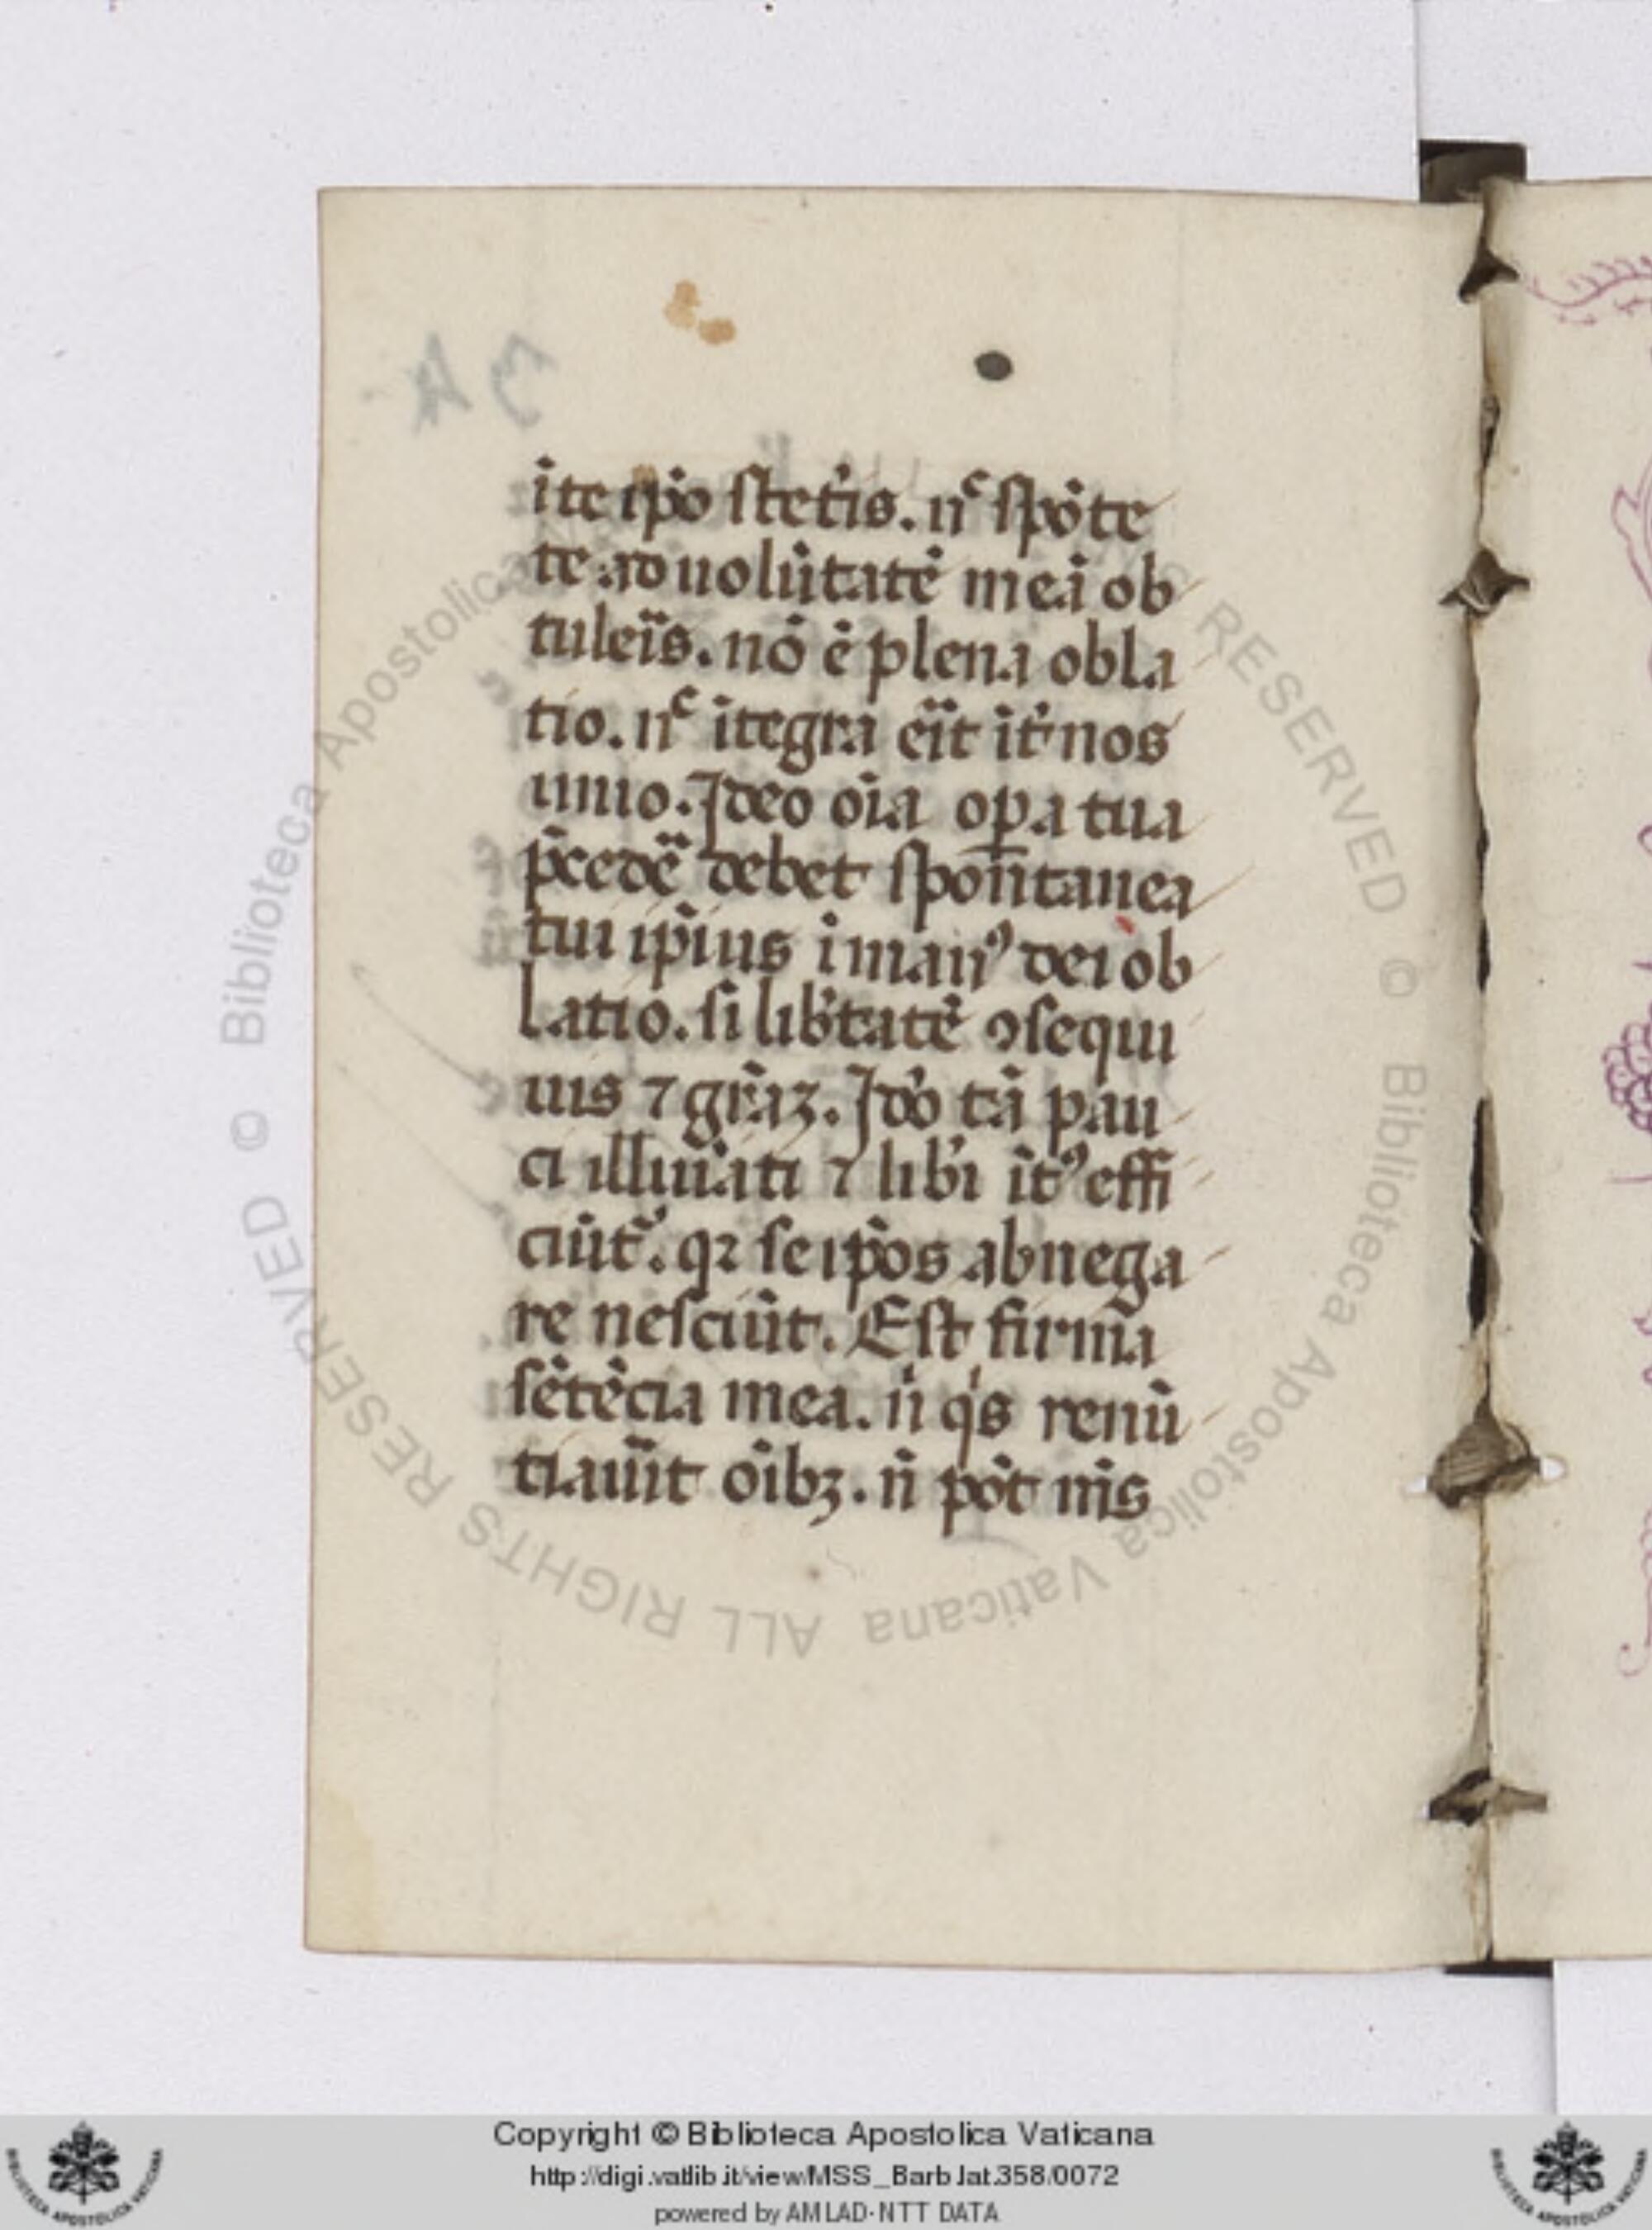 ı̄ te ip̄o stet͛is. nͨ spōte
te ad uolūtatē meā ob
tuleı̄s. nō ē plena obla
tio. nͨ ītegra eı̄t īt͛ nos
unio. Ideo oı̄a oꝑa tua
p̄cedē debet spon̄tanea
tui ip̄ius ī manꝰ dei ob
latio. si lib͛tatē ꝯsequi
uis ⁊ gr̄aꝫ. Ido̅ tā pau
ci illuı̄ati ⁊ lib͛i ītꝰ effi
ciūt᷑. qꝛ se ip̄os abnega
re nesciūt. Est firm̄a
sētēcia mea. n̄ qͥs renū
tiaūit oı̄bꝫ. n̄ pōt m̄s
34
© Biblioteca Apostolica Vaticana ALL RIGHTS RESERVED © Biblioteca Apostolica Vaticana ALL RIGHTS RESERVED
Copyright © Biblioteca Apostolica Vaticana
http://digi.vatlib.it/view/MSS_Barb.lat.358/0072
powered by AMLAD-NTT DATA
BIBLIOTECA APOSTOLICA VATICANA
BIBLIOTECA APOSTOLICA VATICANA